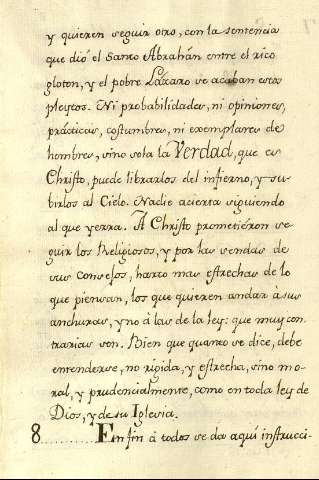 y quieren seguir otro, con la sentencia
que dió el Santo Abrahán entre el rico
gloton, y el pobre Lázaro se acaban estos
pleytos. Ni probabilidades, ni opiniones,
prácticas, costumbres, ni exemplares de
hombres, sino sola la Verdad, que es
Christo, puede librarlos del infierno, y su-
birlos al Cielo. Nadie acierta siguiendo
al que yerra. A Christo prometiéron se-
guir los Religiosos, y por las sendas de
sus consejos, harto mas estrechas de lo
que piensan, los que quieren andar à sus
anchuras, y no à las de la ley: que muy con-
trarias son. Bien que quanto se dice, debe
entenderse, no rigida, y estrecha, sino mo-
ral, y prudencialmente, como en toda ley de
Dios, y de su Iglesia.
8.......... En fin à todos se da aqui instrucci-